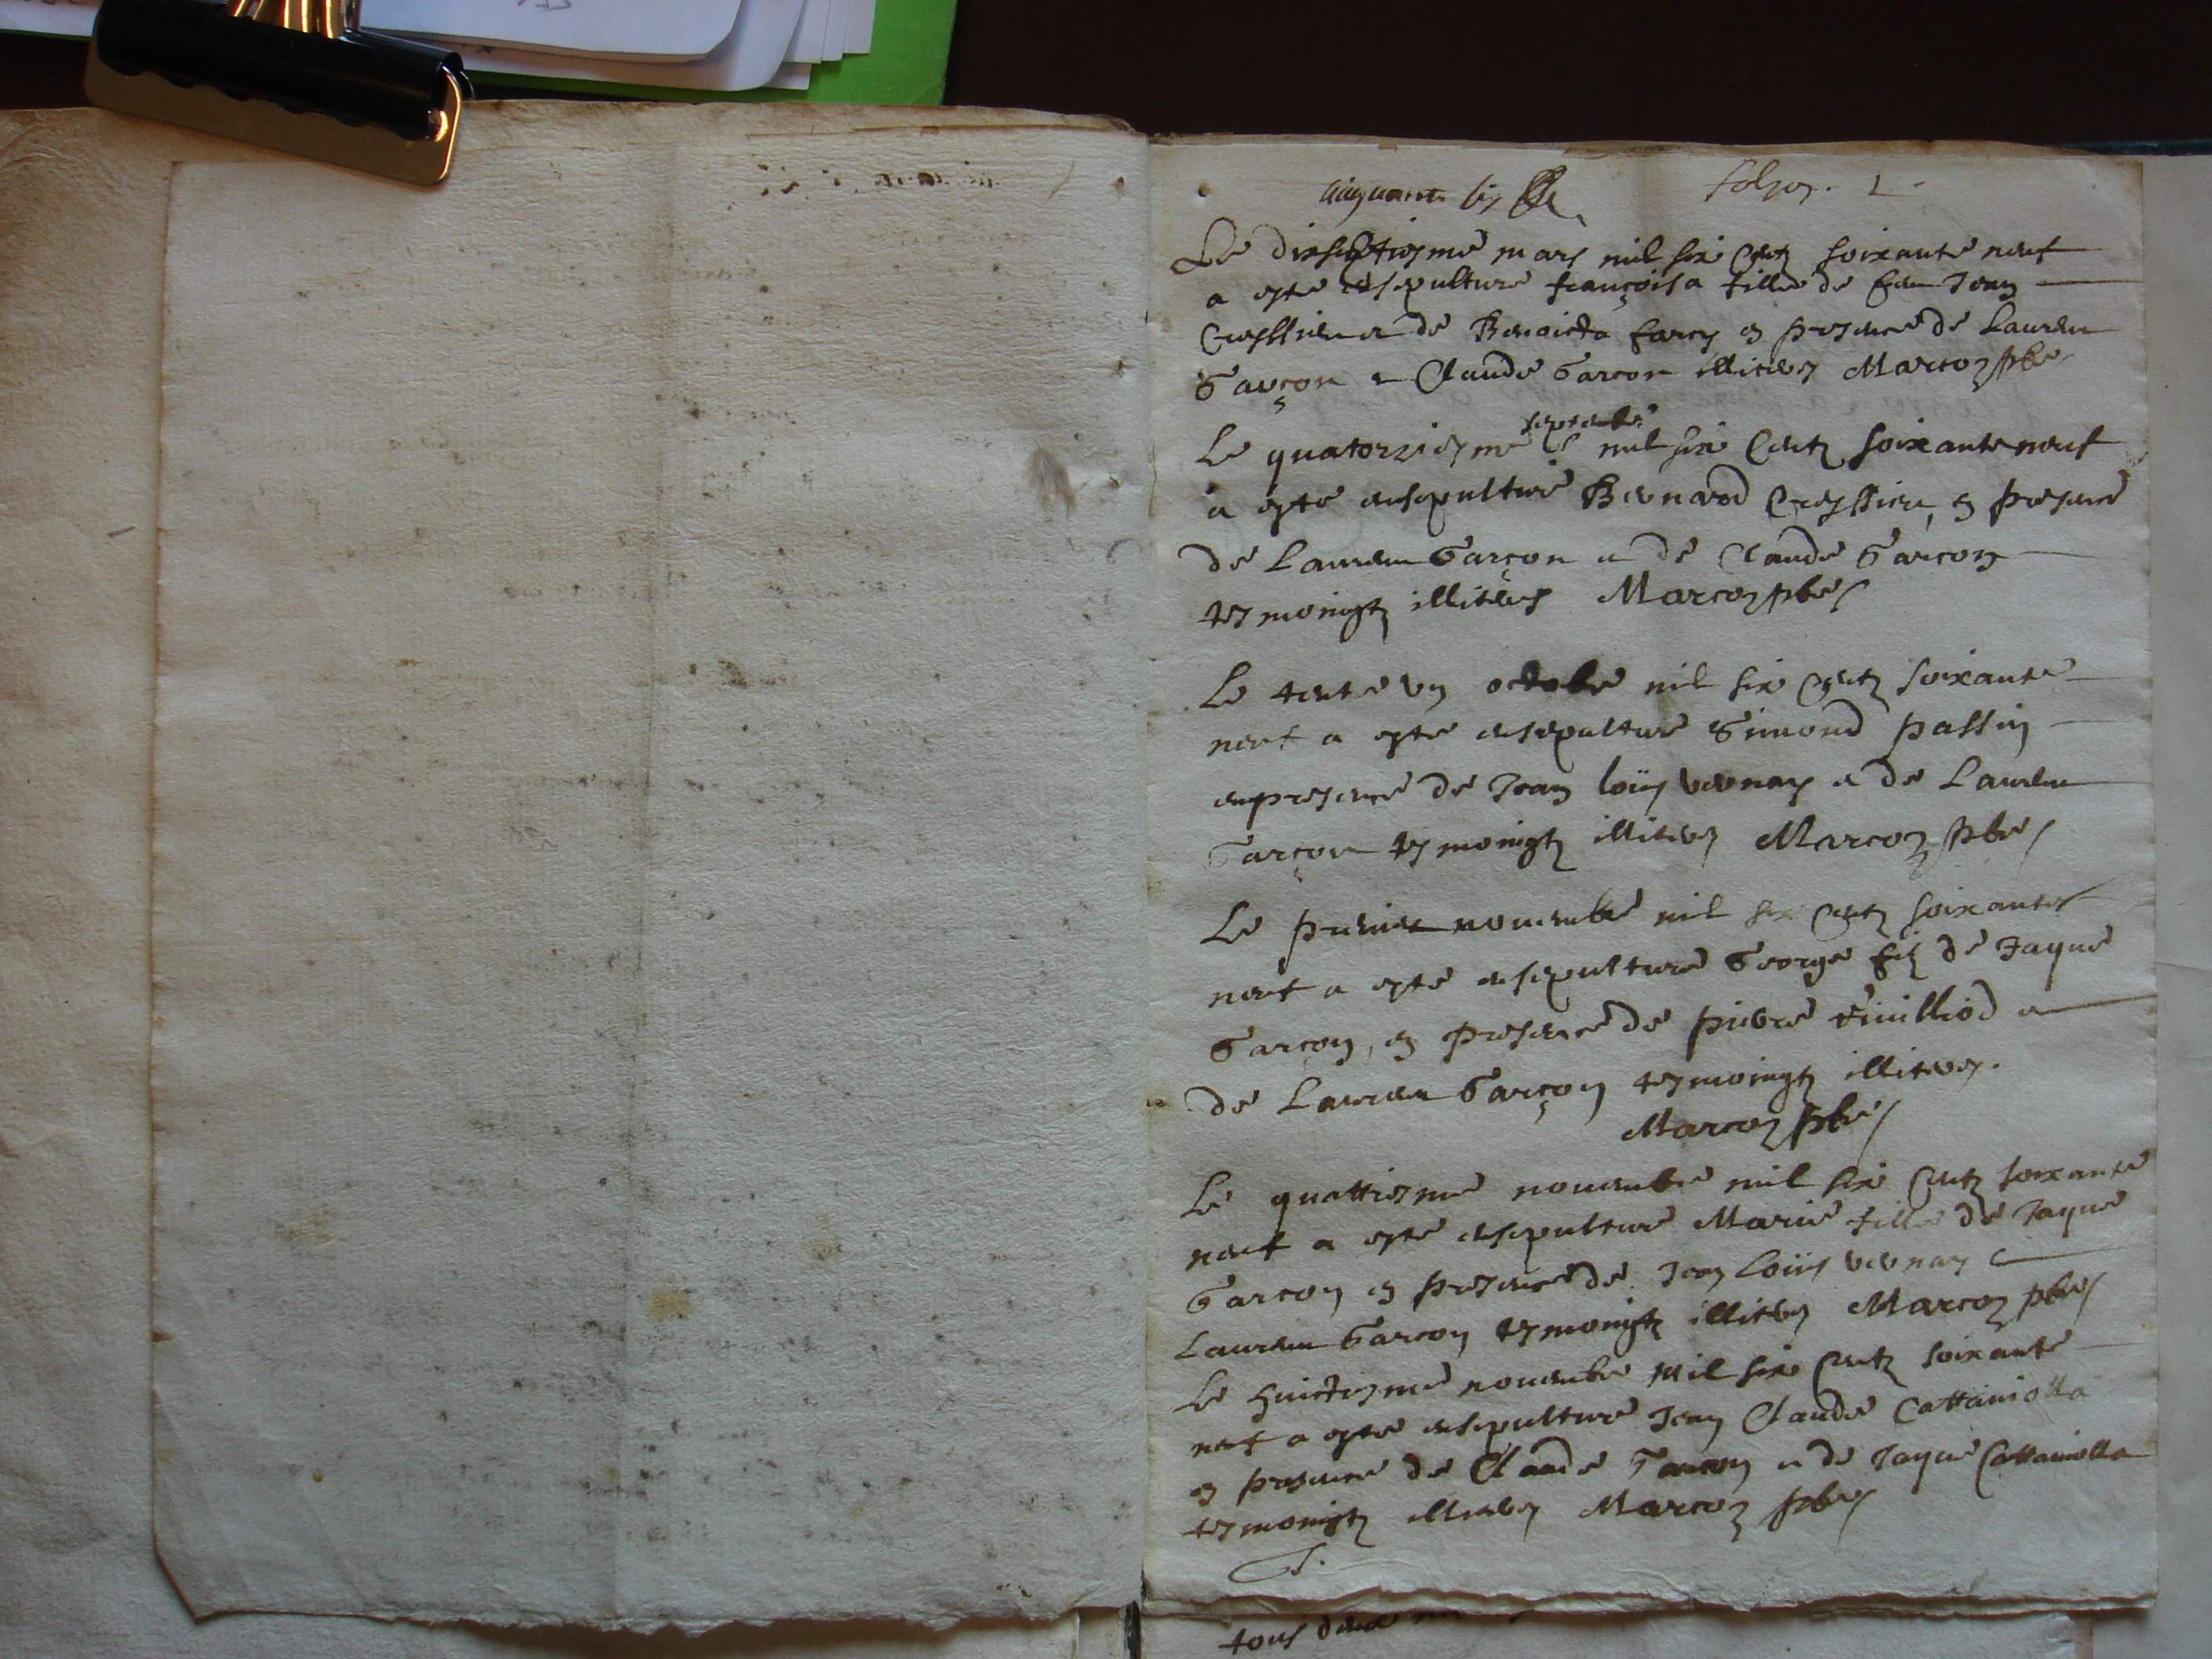 cinquante six
folyoz. 1
Le dixseptiesme mars mil six centz soixante neuf
a esté ensepulturé françoisa fille de feu Jean
Cressieu et de Benoicta farcy en presence de Lauren
Garçon et Claude Garcon illiteres Marcoz pbre
septembre
Le quatorziesme mil six centz soixante neuf
a esté ensepulturé Bernard Cressieu, en presence
de Lauren Garçon et de Claude Garcon
tesmoingtz illiteres Marcoz pbre
Le trente un octobre mil six centz soixante
neuf a esté ensepulturé Simond passin
en presence de Jean loüys vernay et de Lauren
Garçon tesmoingtz illiteres Marcoz pbre
Le premier novembre mil six centz soixante
neuf a esté ensepulturé George filz de Jaque
Garcon, en presence de pierre et
de Lauren Garçon tesmoingtz illiteres.
Marcoz pbre
Le quattriesme novembre mil six centz soixante
neuf a esté ensepulturé Marie fille de Jaque
Garcon en presence de Jean Loüys vernay et
Lauren Garcon tesmoingtz illiteres Marcoz pbre
Le huictiesme novembre mil six centz soixante
neuf a esté ensepulturé Jean Claude Cattaniolla
en presence de Claude Garcon et de Jaque Cattaniolla
tesmoingtz illiteres Marcoz pbre
tous deux